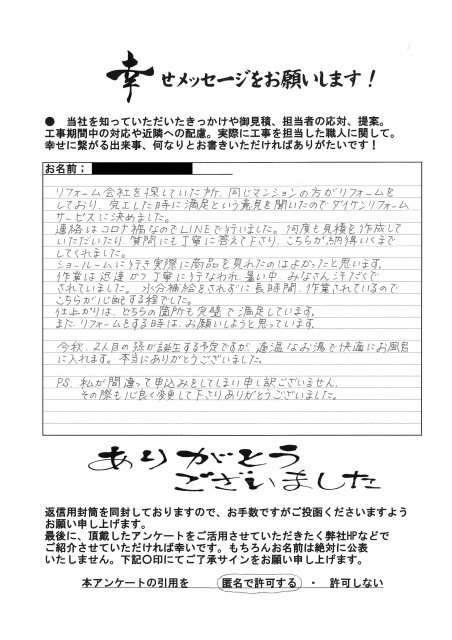 幸せメッセージをお願いします！
● 当社を知っていただいたきっかけや御見積、担当者の応対、提案。
工事期間中の対応や近隣への配慮。実際に工事を担当した職人に関して。
幸せに繋がる出来事、何なりとお書きいただければありがたいです！
お名前：
リフォーム会社を探していた所、同じマンションの方がリフォームを
しており、完工した時に満足という意見を聞いたのでダイケンリフォーム
サービスに決めました。
連絡はコロナ禍なのでLINEで行いました。何度も見積を作成して
いただいたり、質問にも丁寧に答えて下さり、こちらが納得いくまで
してくれました。
ショールームに行き実際に商品を見れたのはよかったと思います。
作業は迅速かつ丁寧に行なわれ暑い中、みなさん汗だくで
されていました。水分補給をされずに長時間、作業されているので
こちらが心配する程でした。
仕上がりは、どちらの箇所も完璧で満足しています。
またリフォームをする時は、お願いしようと思っています。
今秋、2人目の孫が誕生する予定ですが、適温なお湯で快適にお風呂
に入れます。本当にありがとうございました。
P.S. 私が間違って申込みをしてしまい申し訳ございません。
その際も心良く変更して下さりありがとうございました。
ありがとう
ございました
返信用封筒を同封しておりますので、お手数ですがご投函くださいますよう
お願い申し上げます。
最後に、頂戴したアンケートをご活用させていただきたく弊社HPなどで
ご紹介させていただければ幸いです。もちろんお名前は絶対に公表
いたしません。下記〇印にてご了承サインをお願い申し上げます。
本アンケートの引用を 匿名で許可する ・ 許可しない